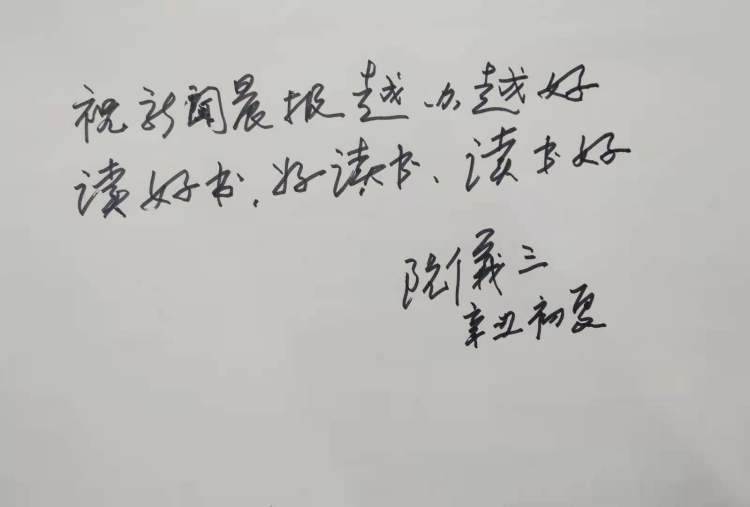 祝新闻晨报越办越好
读好书、好读书、读书好
阮儀三
辛丑初夏